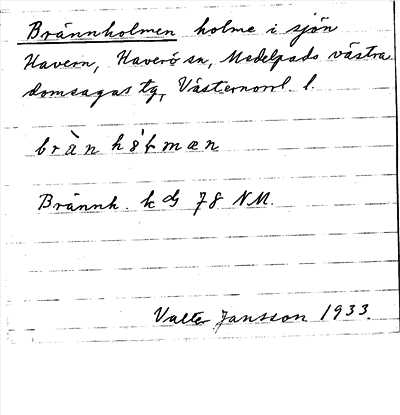 Brännholmen holme i sjön
Havern, Haverö sn, Medelpads västra
domsagas tg, Västernorrl. l.
brän hòḷmæn
Brännh. k 78 NM.
Valter Jansson 1933.